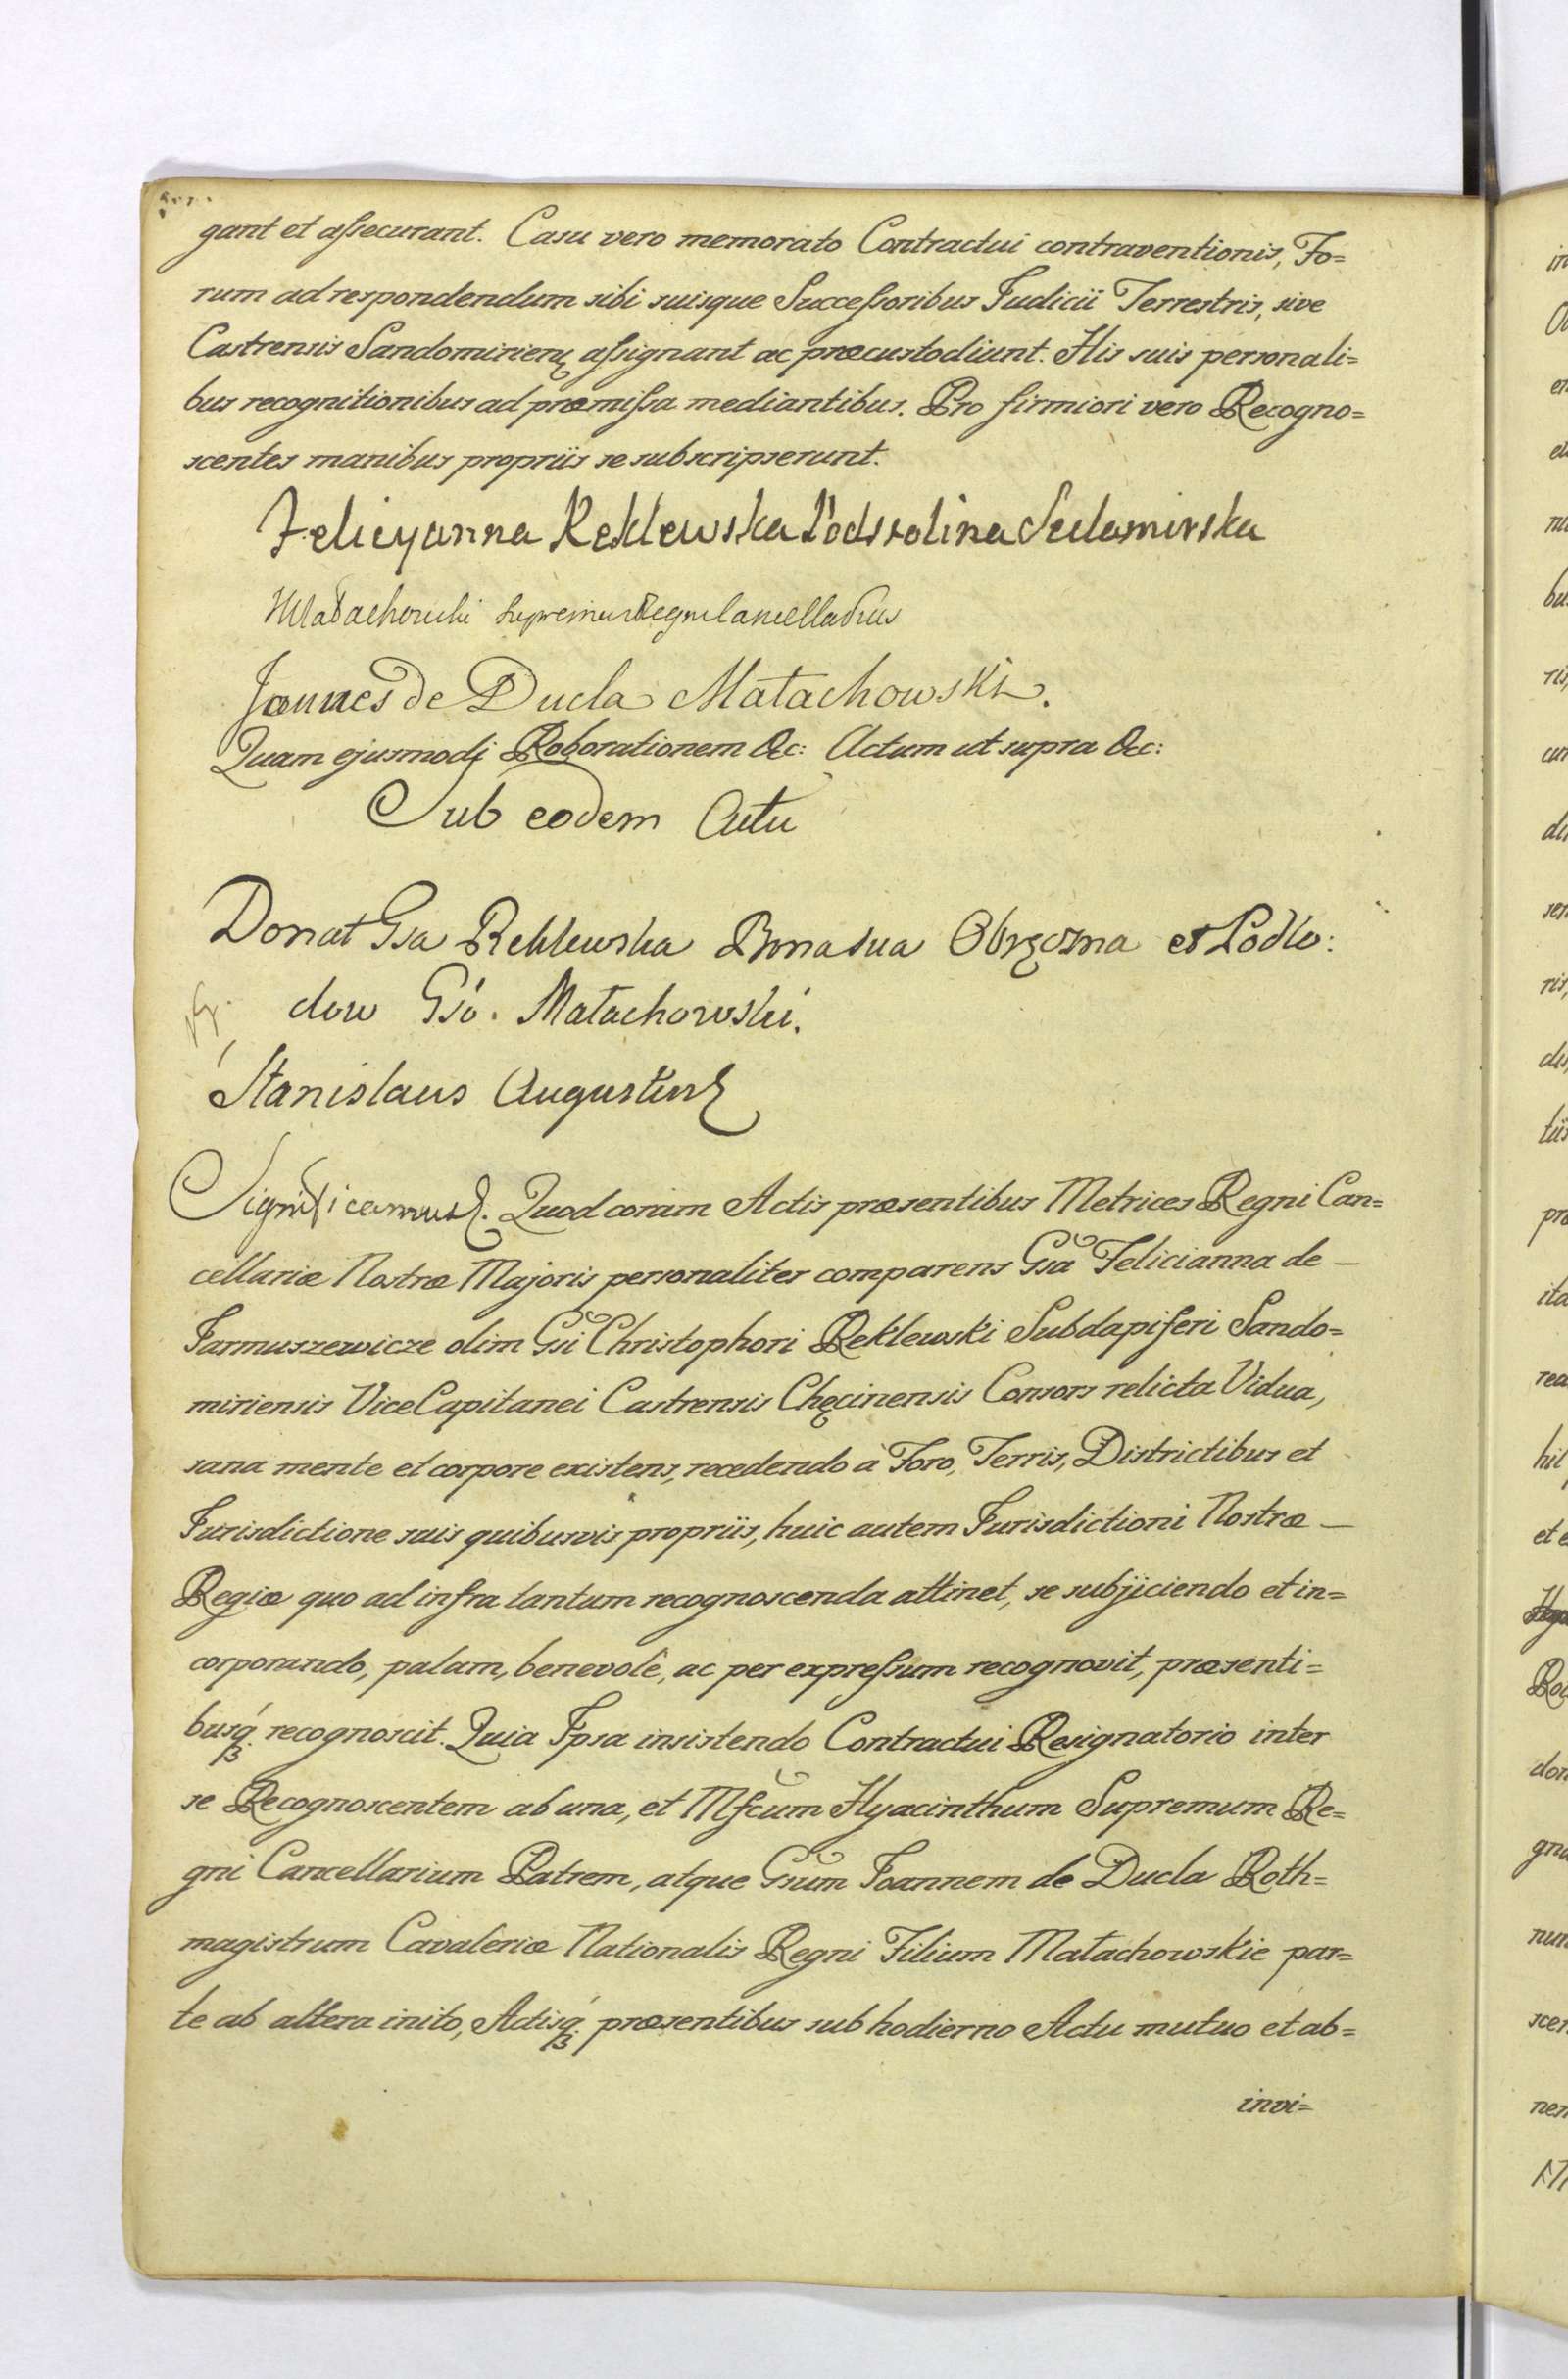 gant et aſsecurant. Casu vero memorato Contractui contraventionis, Fo=
rum ad respondendum sibi suisque Succeſsoribus Judicii Terrestris, sive
Castrensis Sandomirien aſsignant ac præcustodiunt. His suis personali=
bus recognitionibus ad præmiſsa mediantibus. Pro firmiori vero Recogno=
scentes manibus propriis se subscripserunt.
Felicyanna Reklewska Podstolina
Małachowski Supremus Regni Cancellarius
Joannes de Ducla Małachowski.
Quam ejusmodj Roborationem &c: Actum ut supra &c:
Sub eodem Actu
Donat Gsa Reklewska Bona sua Obręczna et Podło:
dow Gsó. Małachowski.
Stanislaus Augustus
Significamus. Quod coram Actis præsentibus Metrices Regni Can=
cellariæ Nostræ Majoris personaliter comparens Gsa Felicianna de —
Jarmuszewicze olim Gsi Christophori Reklewski Subdapiferi Sando=
miriensis ViceCapitanei Castrensis Chęcinensis Consors relicta Vidua,
sana mente et corpore existens, recedendo à Foro, Terris, Districtibus et
Jurisdictione suis quibusvis propriis, huic autem Jurisdictioni Nostræ —
Regiæ quo ad infra tantum recognoscenda attinet, se subjiciendo et in=
corporando, palam, benevolè, ac per expreſsum recognovit, præsenti=
busq́. recognoscit. Quia Ipsa insistendo Contractui Resignatorio inter
se Recognoscentem ab una, et Mfcum Hyacinthum Supremum Re=
gni Cancellarium Patrem, atque Gsum Joannem de Ducla Roth=
magistrum Cavaleriæ Nationalis Regni Filium Małachowskie par=
te ab altera inito, Actisq́. præsentibus sub hodierno Actu mutuo et ab=
invi=